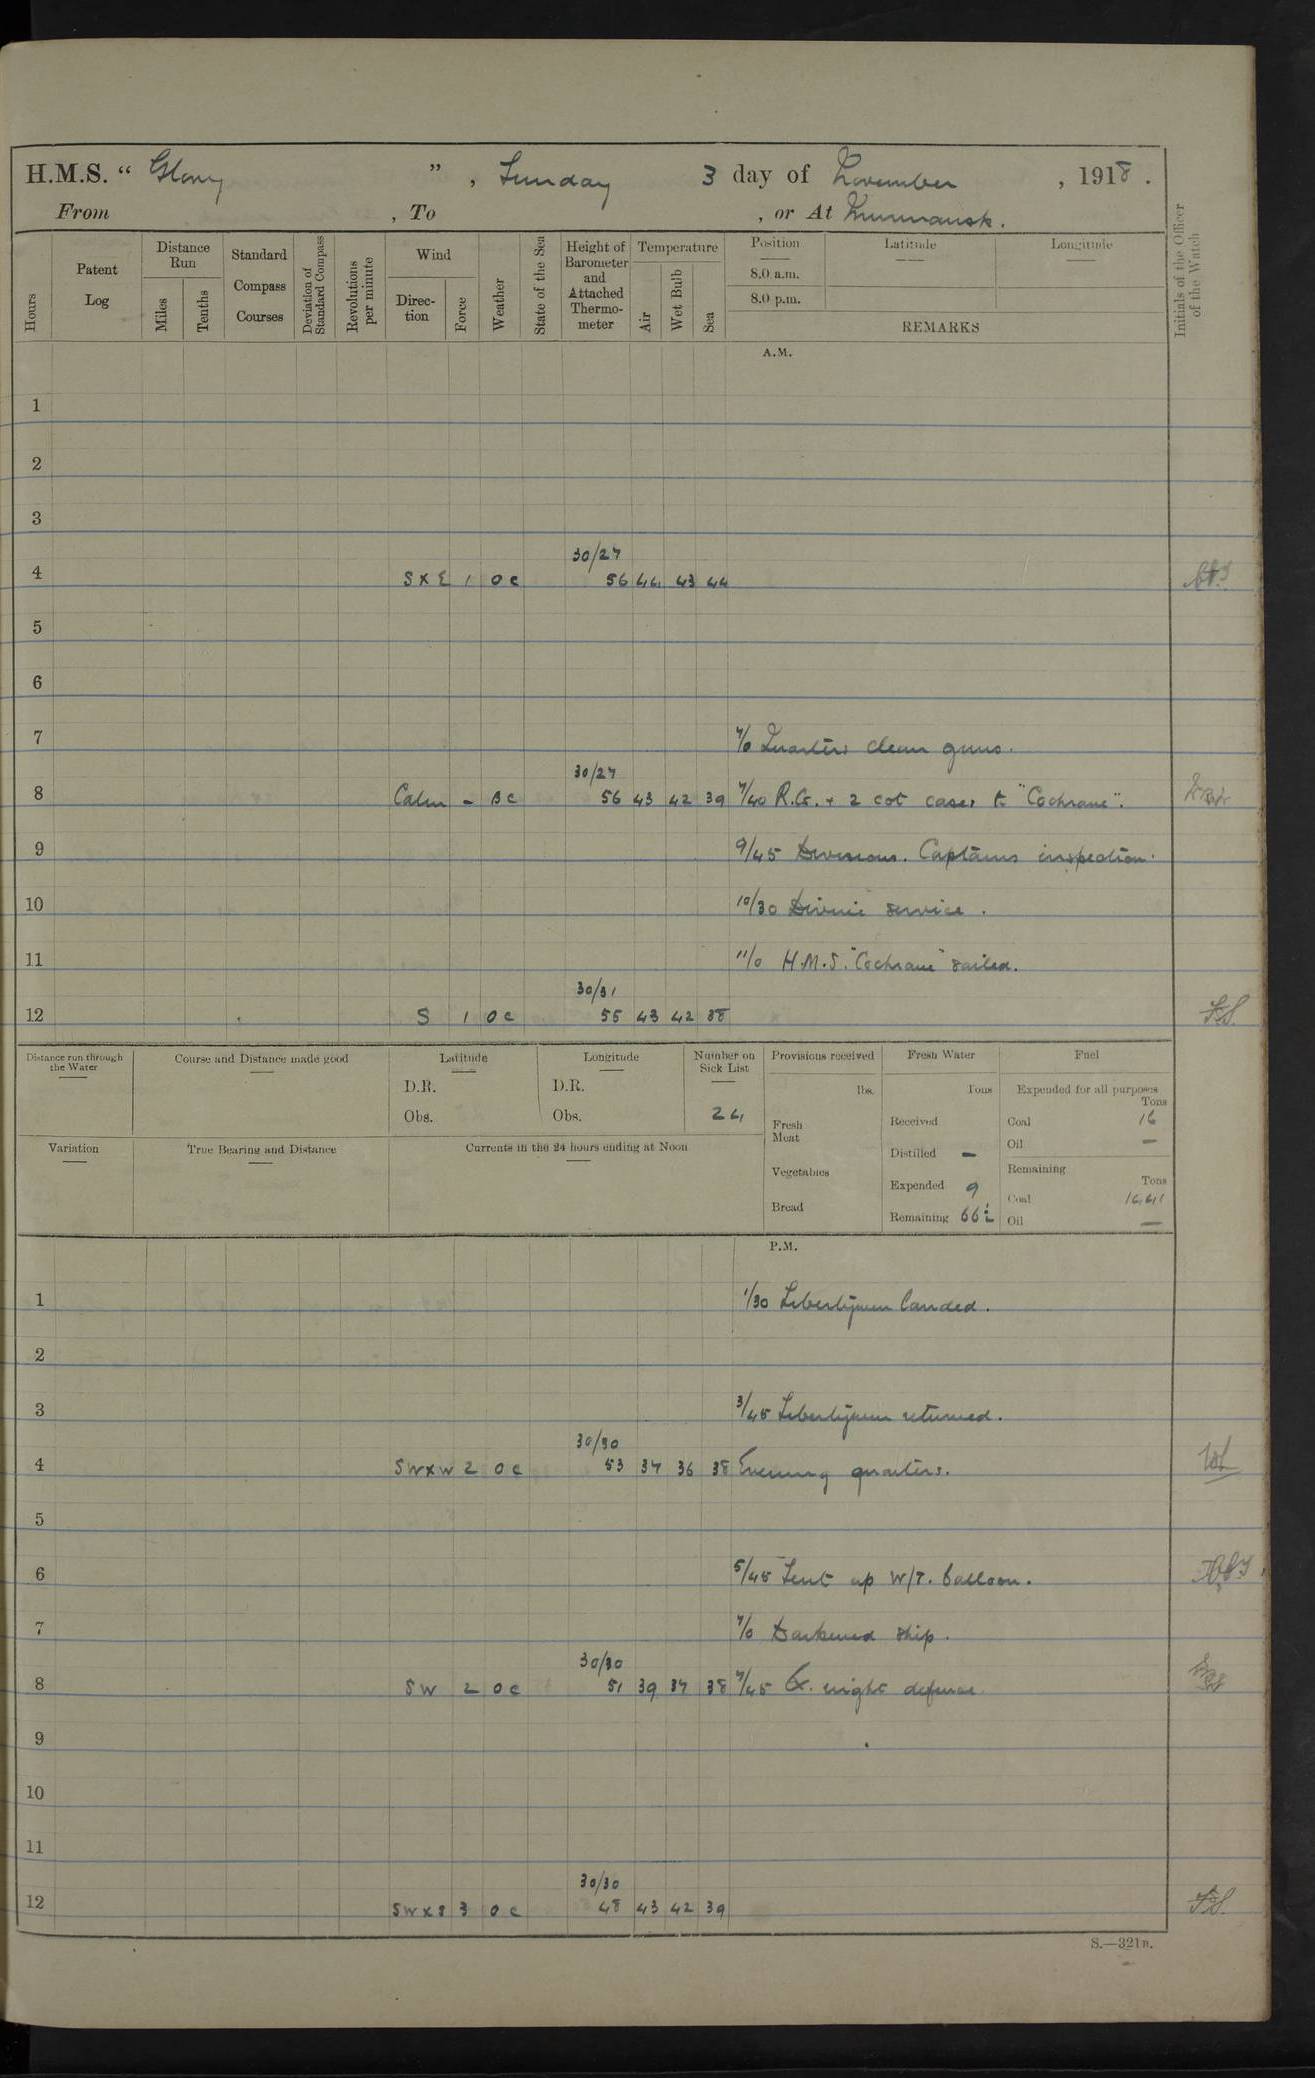 H.M.S. “ Glory ” , Sunday 3 day of November , 1918 .
From , To , or At Murmansk.
Hours
Patent Log
Distance Run
Miles
Tenths
Standard Compass Courses
Deviation of Standard Compass
Revolutions per minute
Wind
Direc-tion
Force
Weather
State of the Sea
Height of Barometer and Attached Thermo-meter
Temperature
Air
Wet Bulb
Sea
Position
8.0 a.m.
8.0 p.m.
Latitude
Longitude
REMARKS
Initials of the Officer of the Watch
A.M.
1
2
3
30/27
4 S x E 1 O C 56 44 43 44
5
6
7 7/0 Quarters clean guns.
30/27
8 Calm - B C 56 43 42 39 7/40 R.G. + 2 cot cases to "Cochrane".
9 9/45 Divisions. Captains inspection.
10 10/30 Divine service.
11 11/0 H.M.S. "Cochrane" sailed.
30/31
12 S 1 O C 55 43 42 38 F.S.
Distance run through the Water
Course and Distance made good
Latitude
D.R.
Obs.
Longitude
D.R.
Obs.
Number on Sick List
24
Variation
True Bearing and Distance
Currents in the 24 hours ending at Noon
Provisions received
lbs.
Fresh Meat
Vegetables
Bread
Fresh Water
Tons
Received
Distilled —
Expended 9
Remaining
Fuel
Expended for all purposes
Tons
Coal 16
Oil —
Remaining
Tons
Coal
Oil —
P.M.
1 1/30 Libertymen landed.
2
3 3/45 Libertymen returned.
30/30
4 SWxW 2 O C 53 37 36 38 Evening quarters.
5
6 5/45 Sent up W/T. balloon.
7 7/0 Darkened ship.
30/30
8 SW 2 O C 51 39 37 38 7/45 Ex. night defence
9
10
11
30/30
12 SWxS 3 O C 48 43 42 39 F.S.
S.—321B.